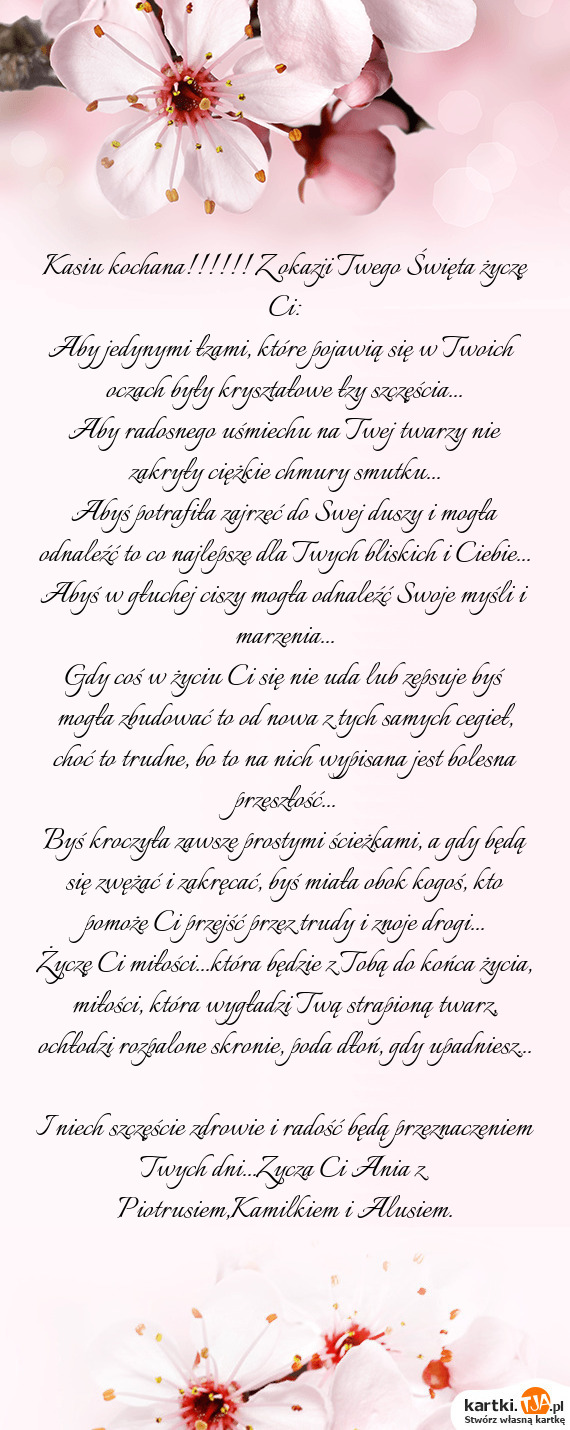 Kasiu kochana!!!!!! Z okazji Twego Święta życzę
Ci:
Aby jedynymi łzami, które pojawią się w Twoich
oczach były kryształowe łzy szczęścia...
Aby radosnego uśmiechu na Twej twarzy nie
zakryły ciężkie chmury smutku...
Abyś potrafiła zajrzeć do Swej duszy i mogła
odnaleźć to co najlepsze dla Twych bliskich i Ciebie...
Abyś w głuchej ciszy mogła odnaleźć Swoje myśli i
marzenia...
Gdy coś w życiu Ci się nie uda lub zepsuje byś
mogła zbudować to od nowa z tych samych cegieł,
choć to trudne, bo to na nich wypisana jest bolesna
przeszłość...
Byś kroczyła zawsze prostymi ścieżkami, a gdy będą
się zwężać i zakręcać, byś miała obok kogoś, kto
pomoże Ci przejść przez trudy i znoje drogi...
Życzę Ci miłości...która będzie z Tobą do końca życia,
miłości, która wygładzi Twą strapioną twarz,
ochłodzi rozpalone skronie, poda dłoń, gdy upadniesz...
I niech szczęście zdrowie i radość będą przeznaczeniem
Twych dni...Zyczą Ci Ania z
Piotrusiem,Kamilkiem i Alusiem.
kartki.TJA.pl
Stwórz własną kartkę